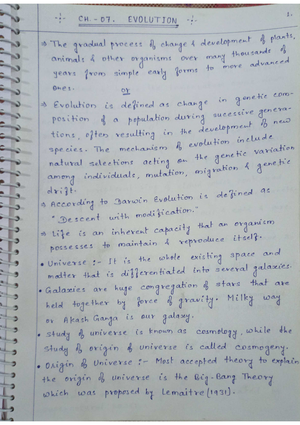 CH-07. EVOLUTION
1.
→ The gradual process of change & development of plants,
animals & other organisms over many thousands of
years from simple early forms to more advanced
ones.
or
→ Evolution is defined as change in genetic com-
position of a population during sucessive genera-
tions, often resulting in the development of new
species. The mechanism of evolution include
natural selections acting on the genetic variation
among individuals, mutation, migration & genetic
drift.
→ According to Darwin Evolution is defined as
"Descent with modification."
→ Life is an inherent capacity that an organism
possesses to maintain & reproduce itself.
• Universe :- It is the whole existing space and
matter that is differentiated into several galaxies.
• Galaxies are huge congregation of stars that are
held together by force of gravity. Milky way
or Akash Ganga is our galaxy.
• Study of universe is known as cosmology, while the
study of origin of universe is called cosmogeny.
• Origin of Universe :- Most accepted theory to explain
the origin of universe is the Big-Bang Theory
which was proposed by Lemaitre (1931).